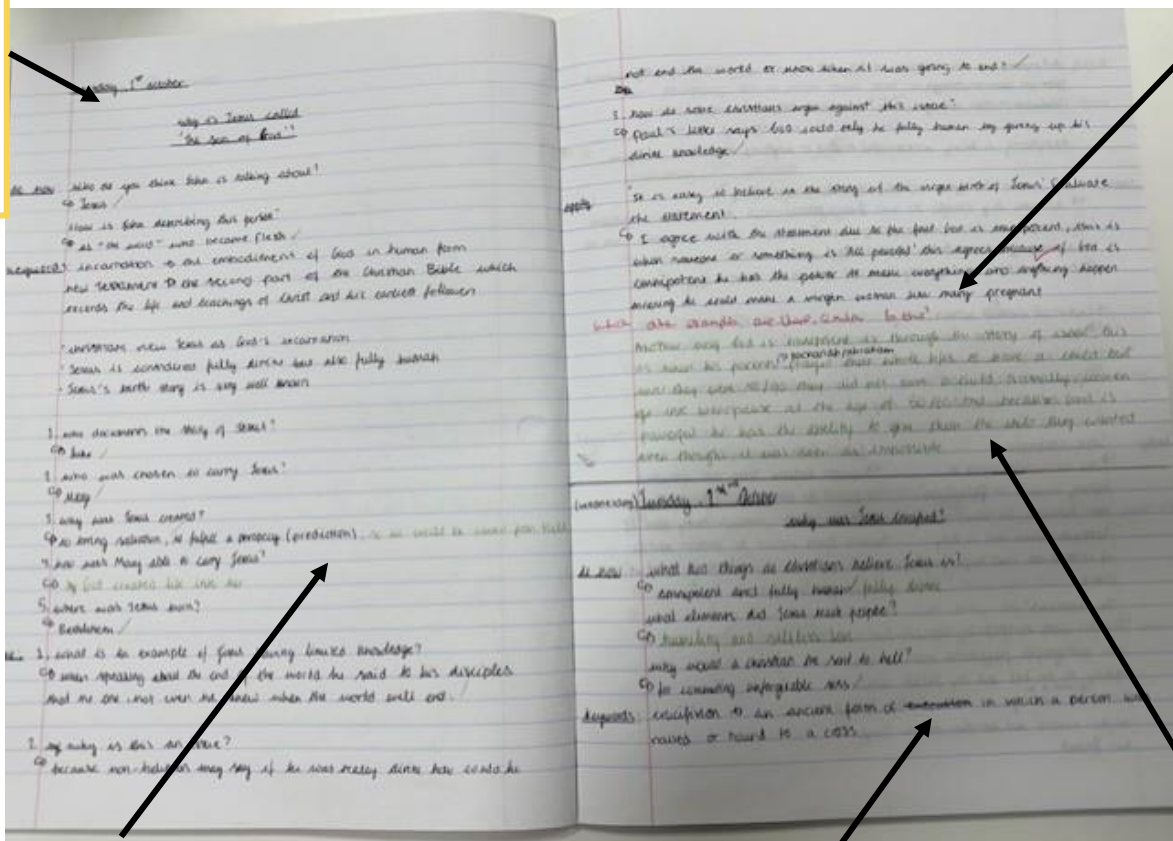 1st October
why is Jesus called
'the son of God'?
do now who do you think John is talking about?
Jesus
How is John describing this person?
as "the word" who became flesh
keywords: incarnation → the embodiment of God in human form
new testament → the second part of the Christian Bible which
records the life and teachings of Christ and his earliest followers
- christians view Jesus as God's incarnation
- Jesus is considered fully divine but also fully human
- Jesus's birth story is very well known
1. who documents the story of Jesus?
2. who was chosen to carry Jesus?
Mary
3. why was Jesus created?
to bring salvation, to fulfill a prophecy (prediction), so we could be saved from hell
4. how was Mary able to carry Jesus?
God created life into her
5. where was Jesus born?
Bethlehem
1. what is an example of Jesus having limited knowledge?
when speaking about the end of the world he said to his disciples
that no one, not even he knew when the world will end.
2. why is this an issue?
because non-believers may say if he was really divine how could he
not end the world or know when it was going to end?
3. how do some christians argue against this issue?
Paul's letter says God could only be fully human by giving up his
divine knowledge
apply 'It is easy to believe in the story of the virgin birth of Jesus' Evaluate
the statement.
I agree with the statement due to the fact God is omnipotent, this is
when someone or something is 'All powerful' this agrees because if God is
omnipotent he has the power to make everything and anything happen
meaning he could make a virgin woman like mary pregnant
Which other examples are there, similar to this?
Another way God is omnipotent is through the story of this
is when his parents prayed their whole lives to have a child but
when they were they did not have a child normally women
go into menopause at the age of but because God is
powerful he has the ability to give them the child they wanted
even though it was seen as impossible
(wednesday) Tuesday, October
why was Jesus crucified?
do now: what two things do christians believe Jesus is?
omnipotent and fully human fully divine
what elements did Jesus teach people?
humility and selfless love
why would a christian be sent to hell?
for committing unforgivable sins
keywords: crucifixion → an ancient form of execution in which a person was
nailed or bound to a cross